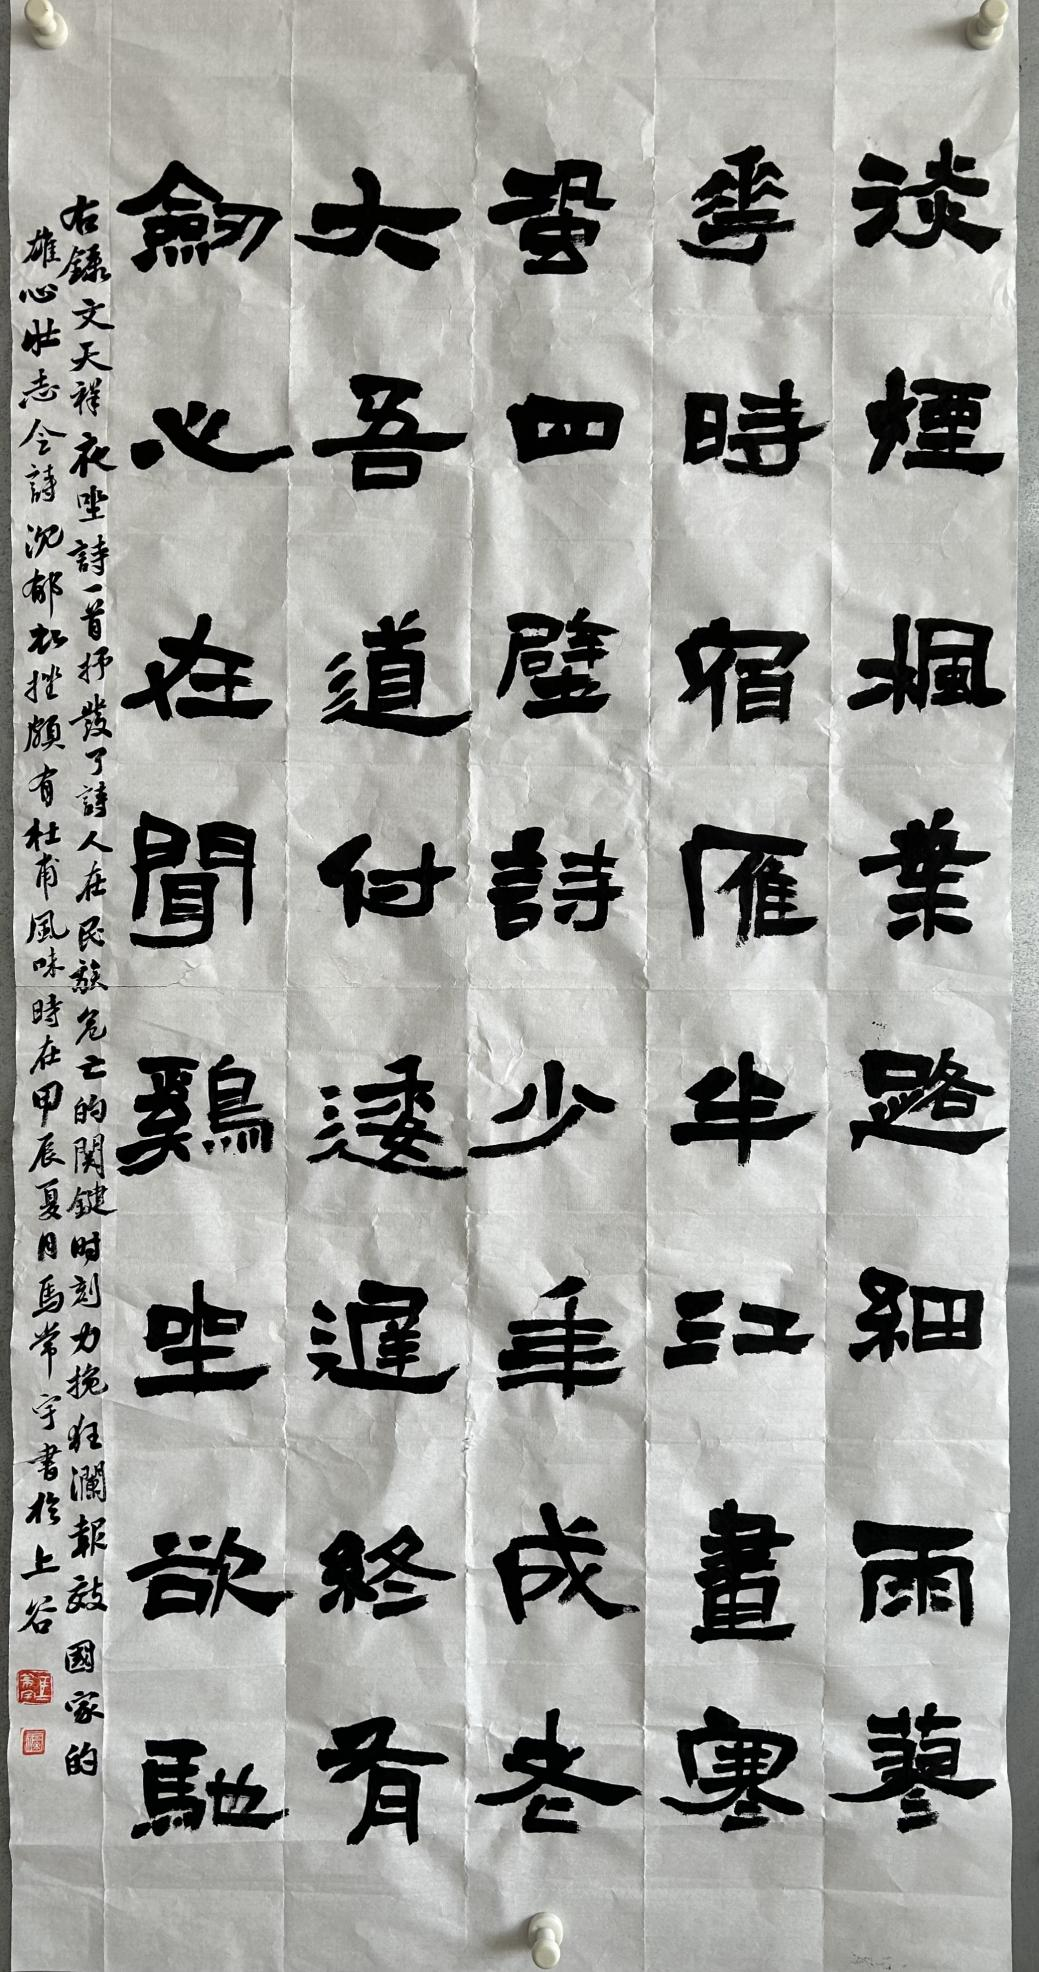 淡煙楓葉路細雨蓼
華時宿雁半江畫寒
蛩四壁詩少年成老
大吾道付逶遲終有
劒心在聞鷄坐欲馳
右錄文天祥夜坐詩一首抒發了詩人在民族危亡的関鍵时刻力挽狂瀾報效國家的
雄心壯志全詩沉郁頓挫頗有杜甫風味時在甲辰夏月馬常宇書於上谷